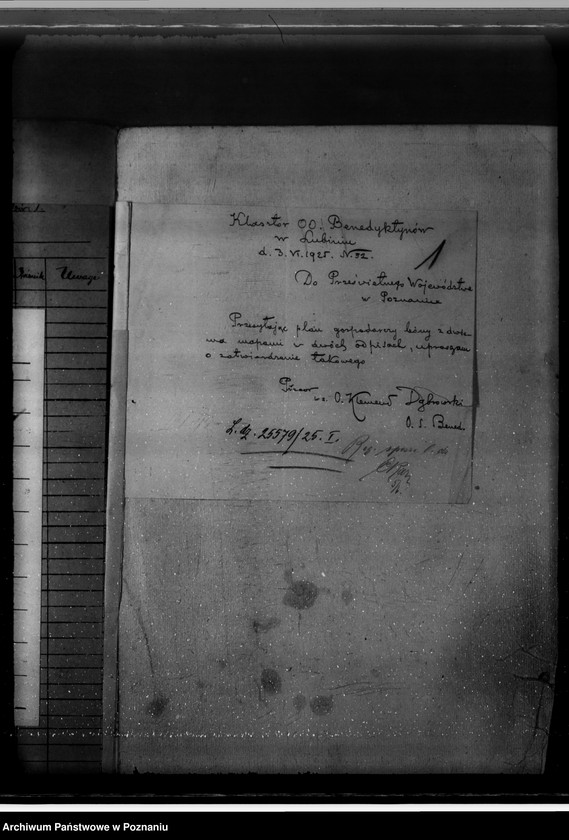 Uwagi
Klasztor OO. Benedyktynów
w Lubiniu
d. 3. VI. 1925. N. 32.
1
Do Prześwietnego Województwa
w Poznaniu
Przesyłając plan gospodarczy leśny z dwo-
ma mapami w dwóch odpisach, upraszam
o zatwierdzenie takowego
Przeor
O. Klemens Dąbrowski
O. S. Bened.
L. dz. 25579/25. I.
Archiwum Państwowe w Poznaniu